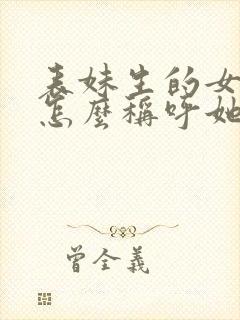 表妹生的女
怎麼稱呼她
曾全義